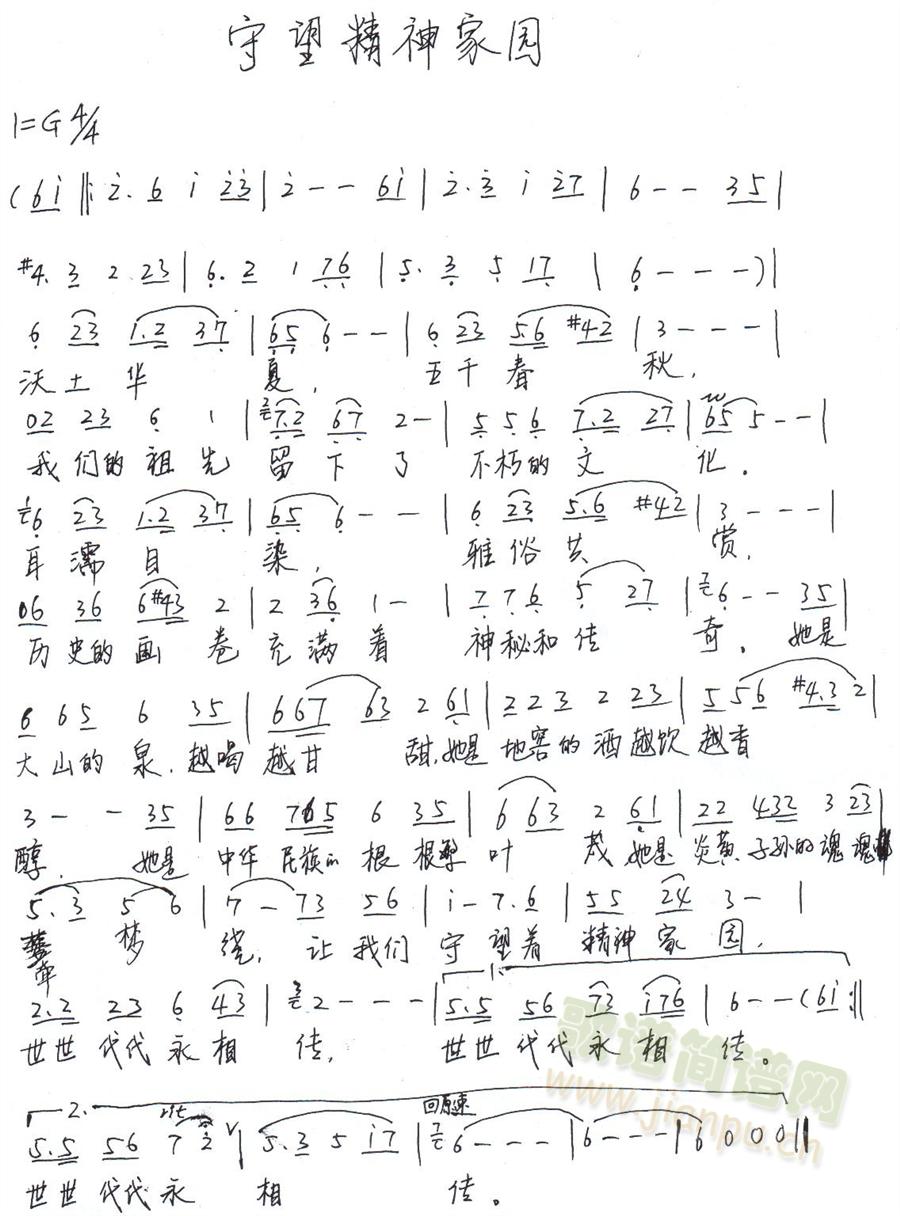 守望精神家园
1=G 4/4
(6i ‖: 2̇. 6 i 2̇3̇ | 2̇ - - 6i | 2̇. 3̇ i 2̇7 | 6 - - 35 |
#4. 3 2 23 | 6. 2 1 76 | 5. 3 5 17 | 6 - - - ) |
6 23 1.2 37 | 65 6 - - | 6 23 56 #42 | 3 - - - |
沃土华 夏, 五千春 秋,
02 23 6 1 | 7.2 67 2 - | 5 5 6 7.2 27 | 65 5 - - |
我们的祖先 留下了 不朽的文 化。
6 23 1.2 37 | 65 6 - - | 6 23 5.6 #42 | 3 - - - |
耳濡目 染, 雅俗共 赏,
06 36 6#43 2 | 2 36 1 - | 7 7 6 5 27 | 6 - - 35 |
历史的画卷 充满着 神秘和传 奇。她是
6 65 6 35 | 667 63 2 61 | 2 2 3 2 23 | 5 56 #4.3 2 |
大山的泉,越喝越甘 甜,她是地窖的酒越饮越香
3 - - 35 | 66 765 6 35 | 6 63 2 61 | 22 432 3 23 |
醇. 她是 中华民族的根根深叶 茂 她是炎黄子孙的魂魂
5.3 5 6 | 7 - 73 56 | i - 7.6 | 55 24 3 - |
牵 梦 绕, 让我们守望着 精神家园,
2.2 23 6 43 | 2 - - - | 1. 5.5 56 73 i76 | 6 - - (6i :‖
世世代代永相 传, 世世代代永相 传。
歌谱简谱网
www.jianpu.cn
2. rit 回原速
5.5 56 7 2̇ | 5.3 5 i7 | 6 - - - | 6 - - - | 6 0 0 0 ‖
世世代代永 相 传。